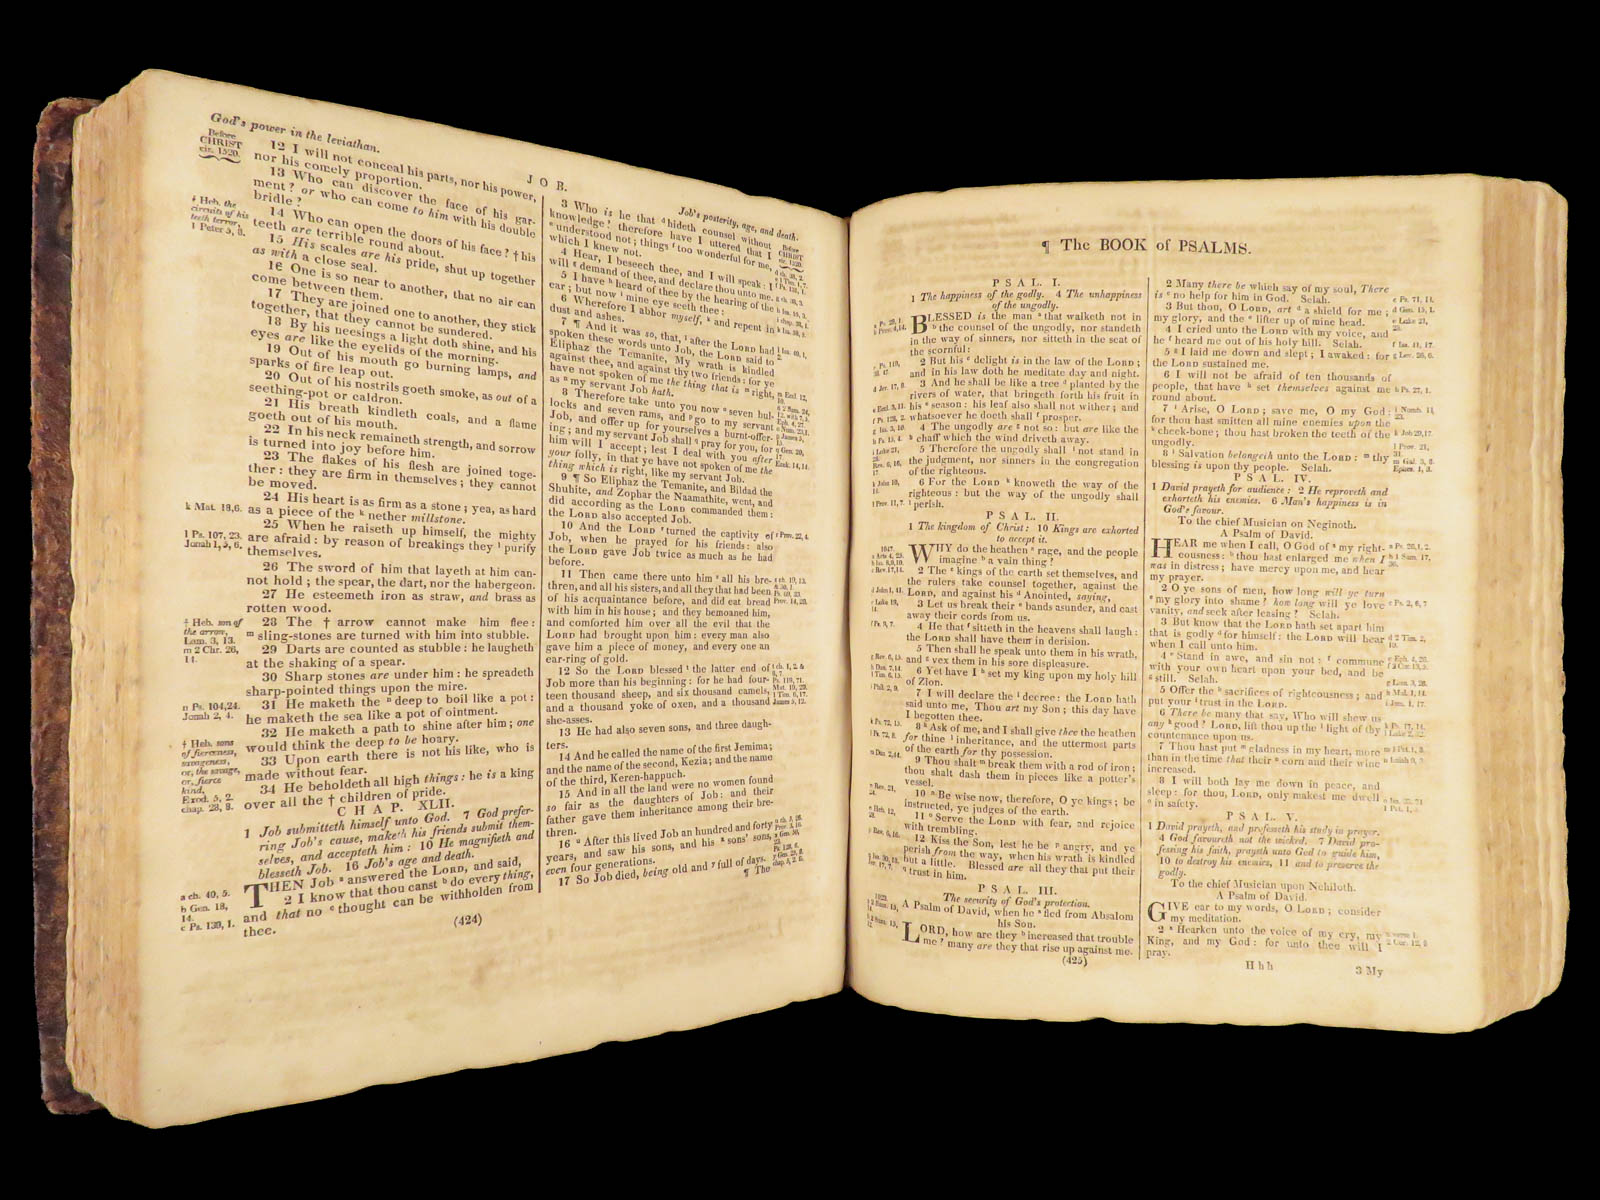 God's power in the leviathan.
J O B.
Job's posterity, age, and death.
Before
CHRIST
cir. 1520.
12 I will not conceal his parts, nor his power,
nor his comely proportion.
13 Who can discover the face of his gar-
ment? or who can come to him with his double
bridle?
14 Who can open the doors of his face? † his
teeth are terrible round about.
15 His scales are his pride, shut up together
as with a close seal.
16 One is so near to another, that no air can
come between them.
17 They are joined one to another, they stick
together, that they cannot be sundered.
18 By his neesings a light doth shine, and his
eyes are like the eyelids of the morning.
19 Out of his mouth go burning lamps, and
sparks of fire leap out.
20 Out of his nostrils goeth smoke, as out of a
seething-pot or caldron.
21 His breath kindleth coals, and a flame
goeth out of his mouth.
22 In his neck remaineth strength, and sorrow
is turned into joy before him.
23 The flakes of his flesh are joined toge-
ther: they are firm in themselves; they cannot
be moved.
24 His heart is as firm as a stone; yea, as hard
as a piece of the k nether millstone.
25 When he raiseth up himself, the mighty
are afraid: by reason of breakings they l purify
themselves.
26 The sword of him that layeth at him can-
not hold; the spear, the dart, nor the habergeon.
27 He esteemeth iron as straw, and brass as
rotten wood.
28 The † arrow cannot make him flee:
m sling-stones are turned with him into stubble.
29 Darts are counted as stubble: he laugheth
at the shaking of a spear.
30 Sharp stones are under him: he spreadeth
sharp-pointed things upon the mire.
31 He maketh the n deep to boil like a pot:
he maketh the sea like a pot of ointment.
32 He maketh a path to shine after him; one
would think the deep to be hoary.
33 Upon earth there is not his like, who is
made without fear.
34 He beholdeth all high things: he is a king
over all the † children of pride.
C H A P. XLII.
1 Job submitteth himself unto God. 7 God prefer-
ring Job's cause, maketh his friends submit them-
selves, and accepteth him: 10 He magnifieth and
blesseth Job. 16 Job's age and death.
THEN Job a answered the LORD, and said,
2 I know that thou canst b do every thing,
and that no c thought can be withholden from
thee.
† Heb. the
circuits of his
teeth terror,
1 Peter 5, 8.
k Mat. 18,6.
l Ps. 107, 23.
Jonah 1, 5, 6.
† Heb. son of
the arrow,
Lam. 3, 13.
m 2 Chr. 26,
14.
n Ps. 104,24.
Jonah 2, 4.
† Heb. sons
of fierceness,
savageness,
or, the savage,
or, fierce
kind,
Exod. 5, 2.
chap. 28, 8.
a ch. 40, 5.
b Gen. 18,
14.
c Ps. 139, 1.
(424)
3 Who is he that d hideth counsel without
knowledge? therefore have I uttered that I
e understood not; things f too wonderful for me,
which I knew not.
4 Hear, I beseech thee, and I will speak: I
will g demand of thee, and declare thou unto me.
5 I have h heard of thee by the hearing of the
ear; but now i mine eye seeth thee:
6 Wherefore I abhor myself, k and repent in
dust and ashes.
7 ¶ And it was so, that, l after the LORD had
spoken these words unto Job, the LORD said to
Eliphaz the Temanite, My wrath is kindled
against thee, and against thy two friends: for ye
have not spoken of me the thing that is m right,
as n my servant Job hath.
8 Therefore take unto you now o seven bul-
locks and seven rams, and p go to my servant
Job, and offer up for yourselves a burnt-offer-
ing; and my servant Job shall q pray for you, for
him will I accept; lest I deal with you after
your folly, in that ye have not spoken of me the
thing which is right, like my servant Job.
9 ¶ So Eliphaz the Temanite, and Bildad the
Shuhite, and Zophar the Naamathite, went, and
did according as the LORD commanded them:
the LORD also accepted Job.
10 And the LORD r turned the captivity of
Job, when he prayed for his friends: also
the LORD gave Job twice as much as he had
before.
11 Then came there unto him s all his bre-
thren, and all his sisters, and all they that had been
of his acquaintance before, and did eat bread
with him in his house; and they bemoaned him,
and comforted him over all the evil that the
LORD had brought upon him: every man also
gave him a piece of money, and every one an
ear-ring of gold.
12 So the LORD blessed t the latter end of
Job more than his beginning: for he had four-
teen thousand sheep, and six thousand camels,
and a thousand yoke of oxen, and a thousand
she-asses.
13 He had also seven sons, and three daugh-
ters.
14 And he called the name of the first Jemima;
and the name of the second, Kezia; and the name
of the third, Keren-happuch.
15 And in all the land were no women found
so fair as the daughters of Job: and their
father gave them inheritance among their bre-
thren.
16 u After this lived Job an hundred and forty
years, and saw his sons, and his x sons' sons,
even four generations.
17 So Job died, being old and y full of days.
¶ The
¶ The BOOK of PSALMS.
P S A L. I.
1 The happiness of the godly. 4 The unhappiness
of the ungodly.
BLESSED is the man a that walketh not in
b the counsel of the ungodly, nor standeth
in the way of sinners, nor sitteth in the seat of
the scornful:
2 But his c delight is in the law of the LORD;
and in his law doth he meditate day and night.
3 And he shall be like a tree d planted by the
rivers of water, that bringeth forth his fruit in
his e season: his leaf also shall not wither; and
whatsoever he doeth shall f prosper.
4 The ungodly are g not so: but are like the
h chaff which the wind driveth away.
5 Therefore the ungodly shall i not stand in
the judgment, nor sinners in the congregation
of the righteous.
6 For the LORD k knoweth the way of the
righteous: but the way of the ungodly shall
l perish.
P S A L. II.
1 The kingdom of Christ: 10 Kings are exhorted
to accept it.
WHY do the heathen a rage, and the people
imagine b a vain thing?
2 The c kings of the earth set themselves, and
the rulers take counsel together, against the
LORD, and against his d Anointed, saying,
3 Let us break their e bands asunder, and cast
away their cords from us.
4 He that f sitteth in the heavens shall laugh:
the LORD shall have them in derision.
5 Then shall he speak unto them in his wrath,
and g vex them in his sore displeasure.
6 Yet have I h set my king upon my holy hill
of Zion.
7 I will declare the i decree: the LORD hath
said unto me, Thou art my Son; this day have
I begotten thee.
8 k Ask of me, and I shall give thee the heathen
for thine l inheritance, and the uttermost parts
of the earth for thy possession.
9 Thou shalt m break them with a rod of iron;
thou shalt dash them in pieces like a potter's
vessel.
10 n Be wise now, therefore, O ye kings; be
instructed, ye judges of the earth.
11 o Serve the LORD with fear, and rejoice
with trembling.
12 Kiss the Son, lest he be p angry, and ye
perish from the way, when his wrath is kindled
but a little. Blessed are all they that put their
q trust in him.
P S A L. III.
The security of God's protection.
A Psalm of David, when he a fled from Absalom
his Son.
LORD, how are they b increased that trouble
me? many are they that rise up against me.
(425)
2 Many there be which say of my soul, There
is c no help for him in God. Selah.
3 But thou, O LORD, art d a shield for me;
my glory, and the e lifter up of mine head.
4 I cried unto the LORD with my voice, and
he f heard me out of his holy hill. Selah.
5 g I laid me down and slept; I awaked: for
the LORD sustained me.
6 I will not be afraid of ten thousands of
people, that have h set themselves against me
round about.
7 i Arise, O LORD; save me, O my God:
for thou hast smitten all mine enemies upon the
k cheek-bone; thou hast broken the teeth of the
ungodly.
8 l Salvation belongeth unto the LORD: m thy
blessing is upon thy people. Selah.
P S A L. IV.
1 David prayeth for audience: 2 He reproveth and
exhorteth his enemies. 6 Man's happiness is in
God's favour.
To the chief Musician on Neginoth.
A Psalm of David.
HEAR me when I call, O God of a my right-
eousness: b thou hast enlarged me when I
was in distress; have mercy upon me, and hear
my prayer.
2 O ye sons of men, how long will ye turn
c my glory into shame? how long will ye love
vanity, and seek after leasing? Selah.
3 But know that the LORD hath set apart him
that is godly d for himself: the LORD will hear
when I call unto him.
4 e Stand in awe, and sin not: f commune
with your own heart upon your bed, and be
g still. Selah.
5 Offer the h sacrifices of righteousness; and
put your i trust in the LORD.
6 There be many that say, Who will shew us
any k good? LORD, lift thou up the l light of thy
countenance upon us.
7 Thou hast put m gladness in my heart, more
than in the time that their n corn and their wine
increased.
8 I will both lay me down in peace, and
sleep: for thou, LORD, only makest me dwell
o in safety.
P S A L. V.
1 David prayeth, and professeth his study in prayer.
4 God favoureth not the wicked. 7 David pro-
fessing his faith, prayeth unto God to guide him,
10 to destroy his enemies, 11 and to preserve the
godly.
To the chief Musician upon Nehiloth.
A Psalm of David.
GIVE ear to my words, O LORD; consider
my meditation.
2 a Hearken unto the voice of my cry, my
King, and my God: for unto thee will I
pray.
H h h
3 My